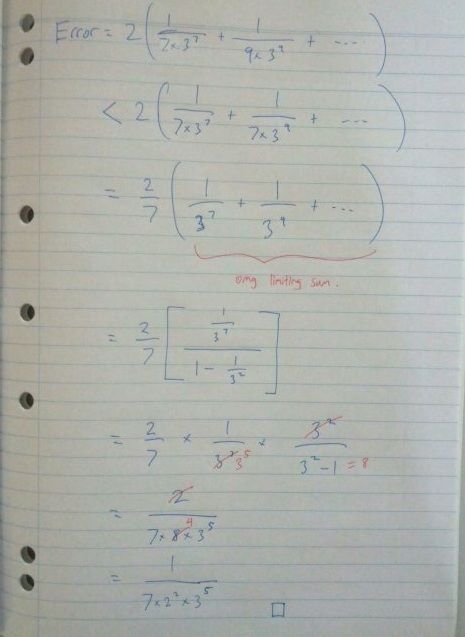 Error = 2 ( 1/(7×3⁷) + 1/(9×3⁹) + ---- )
< 2 ( 1/(7×3⁷) + 1/(7×3⁹) + --- )
= 2/7 ( 1/3⁷ + 1/3⁹ + --- )
omg limiting sum.
= 2/7 [ (1/3⁷) / (1 - 1/3²) ]
= 2/7 × 1/(3⁷ 3⁵) × 3²/(3²-1) = 8
= 2/(7×8 4×3⁵)
= 1/(7×2²×3⁵) □